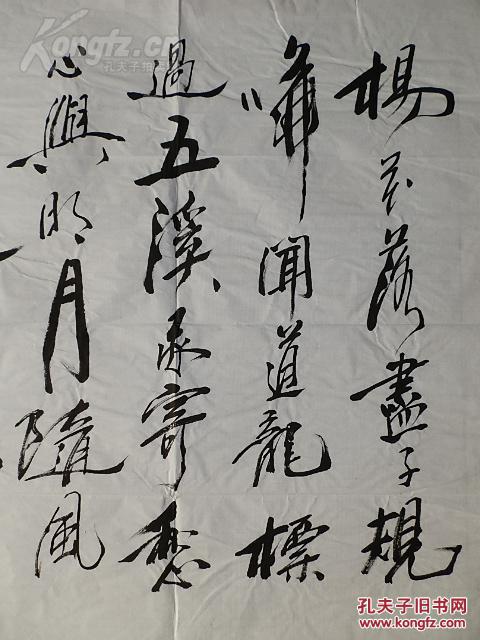 楊花落盡子規
啼聞道龍標
過五溪我寄愁
心與明月隨風
Kongfz.cn
孔夫子旧书网
www.kongfz.com